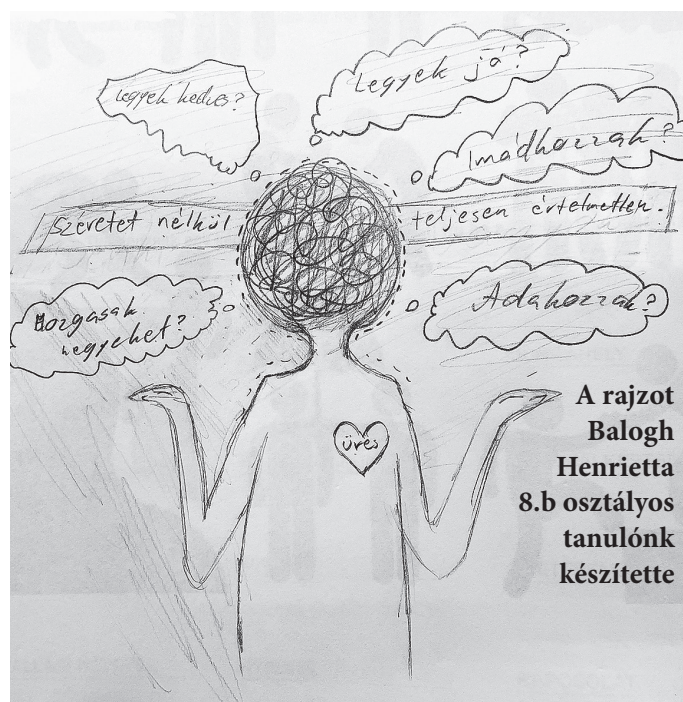 Legyek kedves?
Legyek jó?
Imádkozzak?
Szeretet nélkül teljesen értelmetlen.
Mozgasak
hegyeket?
Adakozzak?
üres
A rajzot
Balogh
Henrietta
8.b osztályos
tanulónk
készítette